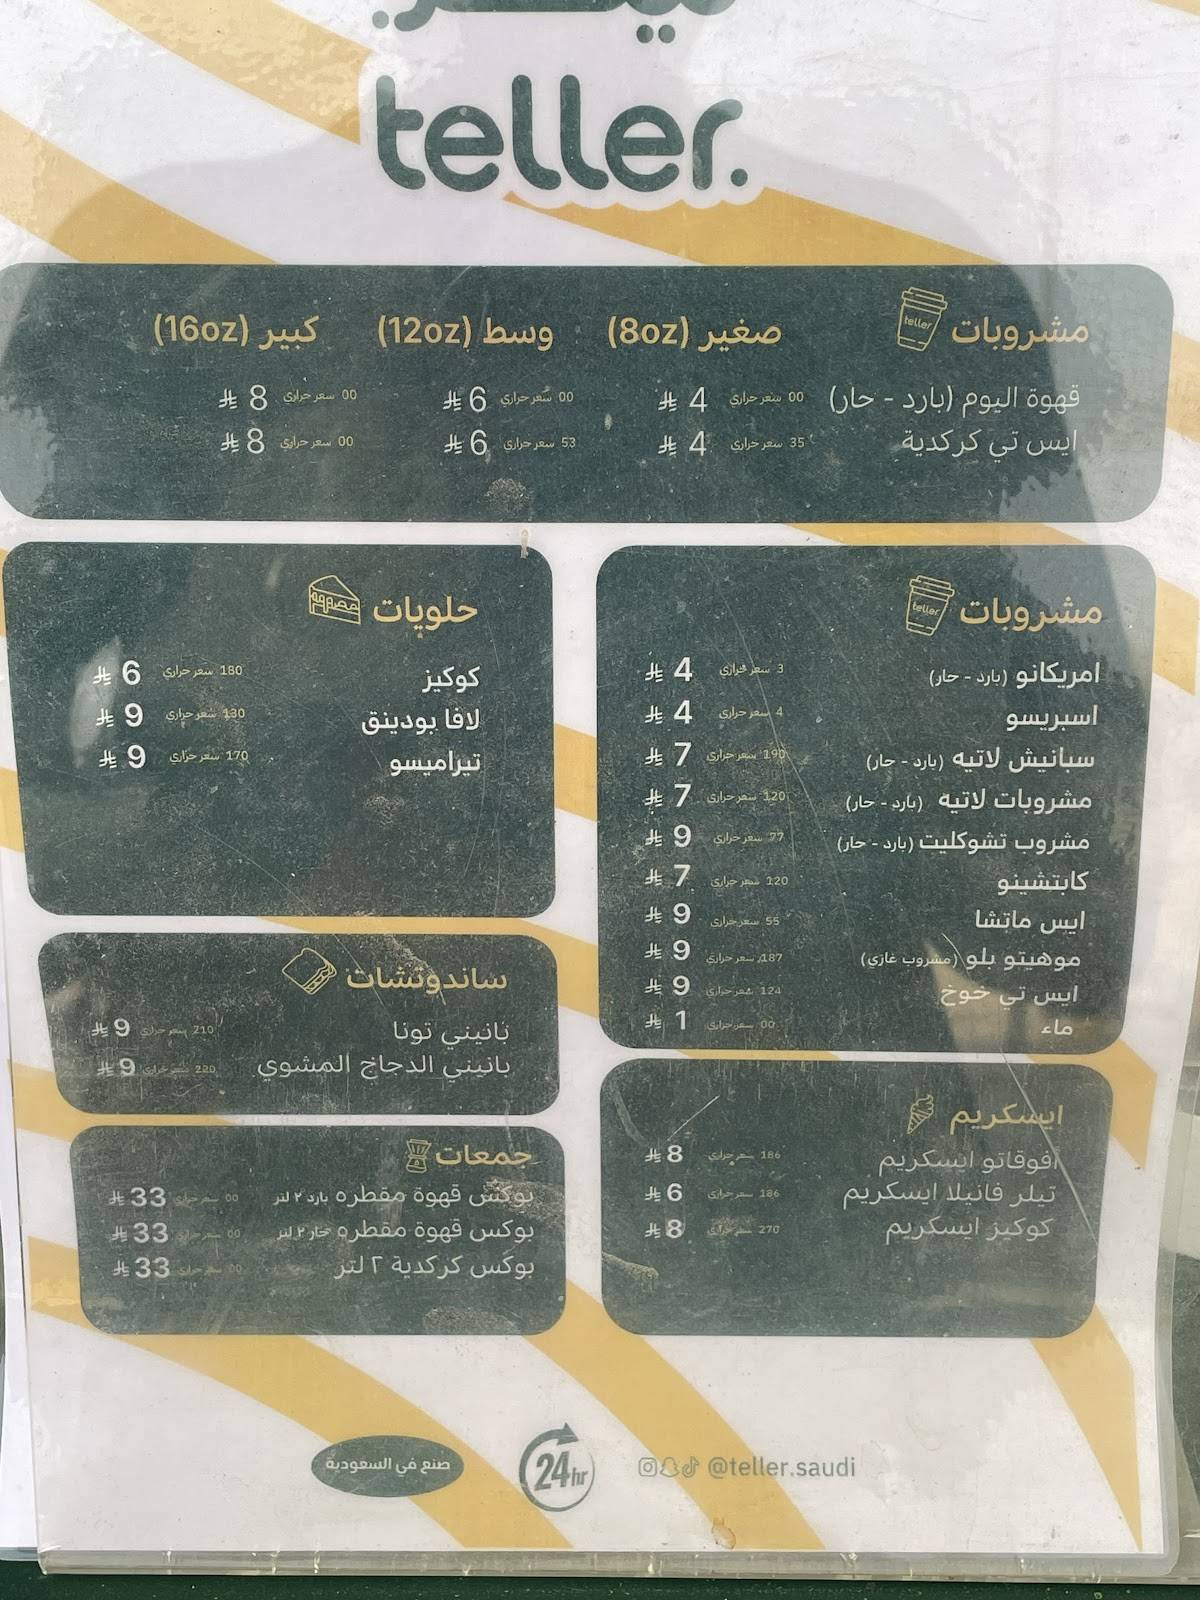 teller.
مشروبات
صغير (8oz) وسط (12oz) كبير (16oz)
قهوة اليوم (بارد - حار) 00 سعر حراري 4 00 سعر حراري 6 00 سعر حراري 8
ايس تي كركدية 35 سعر حراري 4 53 سعر حراري 6 00 سعر حراري 8
مشروبات
امريكانو (بارد - حار) 3 سعر حراري 4
اسبريسو 4 سعر حراري 4
سبانيش لاتيه (بارد - حار) 190 سعر حراري 7
مشروبات لاتيه (بارد - حار) 120 سعر حراري 7
مشروب تشوكليت (بارد - حار) 77 سعر حراري 9
كابتشينو 120 سعر حراري 7
ايس ماتشا 55 سعر حراري 9
موهيتو بلو (مشروب غازي) 187 سعر حراري 9
ايس تي خوخ 124 سعر حراري 9
ماء 00 سعر حراري 1
حلويات
كوكيز 180 سعر حراري 6
لافا بودينق 130 سعر حراري 9
تيراميسو 170 سعر حراري 9
ساندوتشات
بانيني تونا 210 سعر حراري 9
بانيني الدجاج المشوي 220 سعر حراري 9
ايسكريم
افوقاتو ايسكريم 186 سعر حراري 8
تيلر فانيلا ايسكريم 186 سعر حراري 6
كوكيز ايسكريم 270 سعر حراري 8
جمعات
بوكس قهوة مقطره بارد ٢ لتر 00 سعر حراري 33
بوكس قهوة مقطره حار ٢ لتر 00 سعر حراري 33
بوكس كركدية ٢ لتر 00 سعر حراري 33
صنع في السعودية
24hr
@teller.saudi